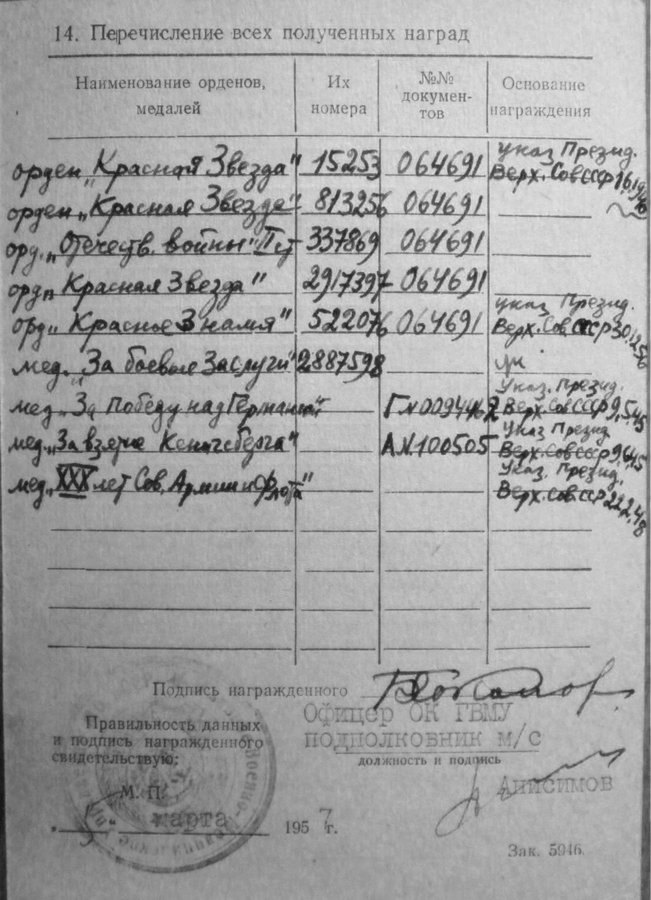 14. Перечисление всех полученных наград
Наименование орденов, медалей
Их номера
№№ документов
Основание награждения
орден „Красная Звезда" 15253 064691 указ Презид. Верх. Сов СССР
орден „Красная Звезда" 813256 064691
орд. „Отечеств. войны" II ст 337869 064691
орд „Красная Звезда" 2917397 064691
орд „Красное Знамя" 522076 064691 указ Презид. Верх. Сов СССР
мед. „За боевые Заслуги" 2887598
мед. „За Победу над Германией" Г№ 0094462 Указ. Презид. Верх. Сов СССР 9.5.45
мед. „За взятие Кенигсберга" А№ 100505 Указ Презид Верх. Сов СССР 9.6.45
мед. „XXX лет Сов. Армии и Флота" Указ. Презид. Верх. Сов СССР 22.2.48
Подпись награжденного
Офицер ОК ГВМУ
подполковник м/с
должность и подпись
Анисимов
Правильность данных
и подпись награжденного
свидетельствую:
М. П.
„5" марта 1957 г.
Зак. 5946.